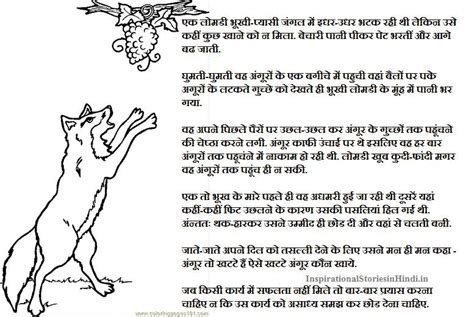 एक लोमडी भूखी-प्यासी जंगल में इधर-उधर भटक रही थी लेकिन उसे
कहीं कुछ खाने को न मिला. बेचारी पानी पीकर पेट भरती और आगे
बढ जाती.
घुमती-घुमती वह अंगूरों के एक बगीचे में पहुची वहां बैलों पर पके
अंगूरों के लटकते गुच्छे को देखते ही भूखी लोमडी के मूंह में पानी भर
गया.
वह अपने पिछले पैरों पर उछल-उछल कर अंगूर के गुच्छों तक पहूंचने
की चेष्ठा करने लगी. अंगूर काफी उंचाई पर थे इसलिए वह हर बार
अंगूरों तक पहूंचने में नाकाम हो रही थी. लोमडी खूब कुदी-फांदी मगर
वह अंगूरों तक पहूंच ही न सकी.
एक तो भूख के मारे पहले ही वह अधमरी हुई जा रही थी दूसरें वहां
कहीं-कहीं फिट उछलने के कारण उसकी पसलियां हिल गई थी.
अंन्ततः थक-हारकर उसने उम्मीद ही छोड दी और वहां से चलती बनी.
जाते-जाते अपने दिल को तसल्ली देने के लिए उसने मन ही मन कहा -
अंगूर तो खटटे हैं ऐसे खटटे अंगूर कौन खाये.
InspirationalStoriesinHindi.in
जब किसी कार्य में सफलता नहीं मिले तो बार-बार प्रयास करना
चाहिए न कि उस कार्य को असाध्य समझ कर छोड देना चाहिए.
www.coloringpages101.com